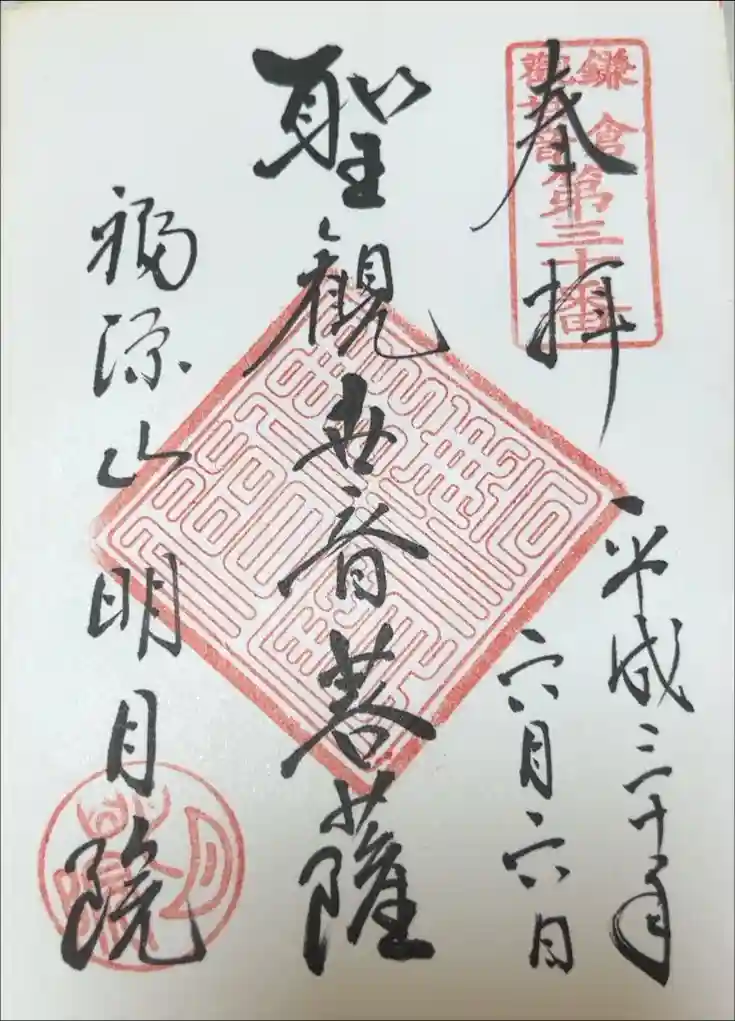 奉拝
鎌倉
観世音
第三十番
平成三十年
六月六日
聖観世音菩薩
福源山明月院